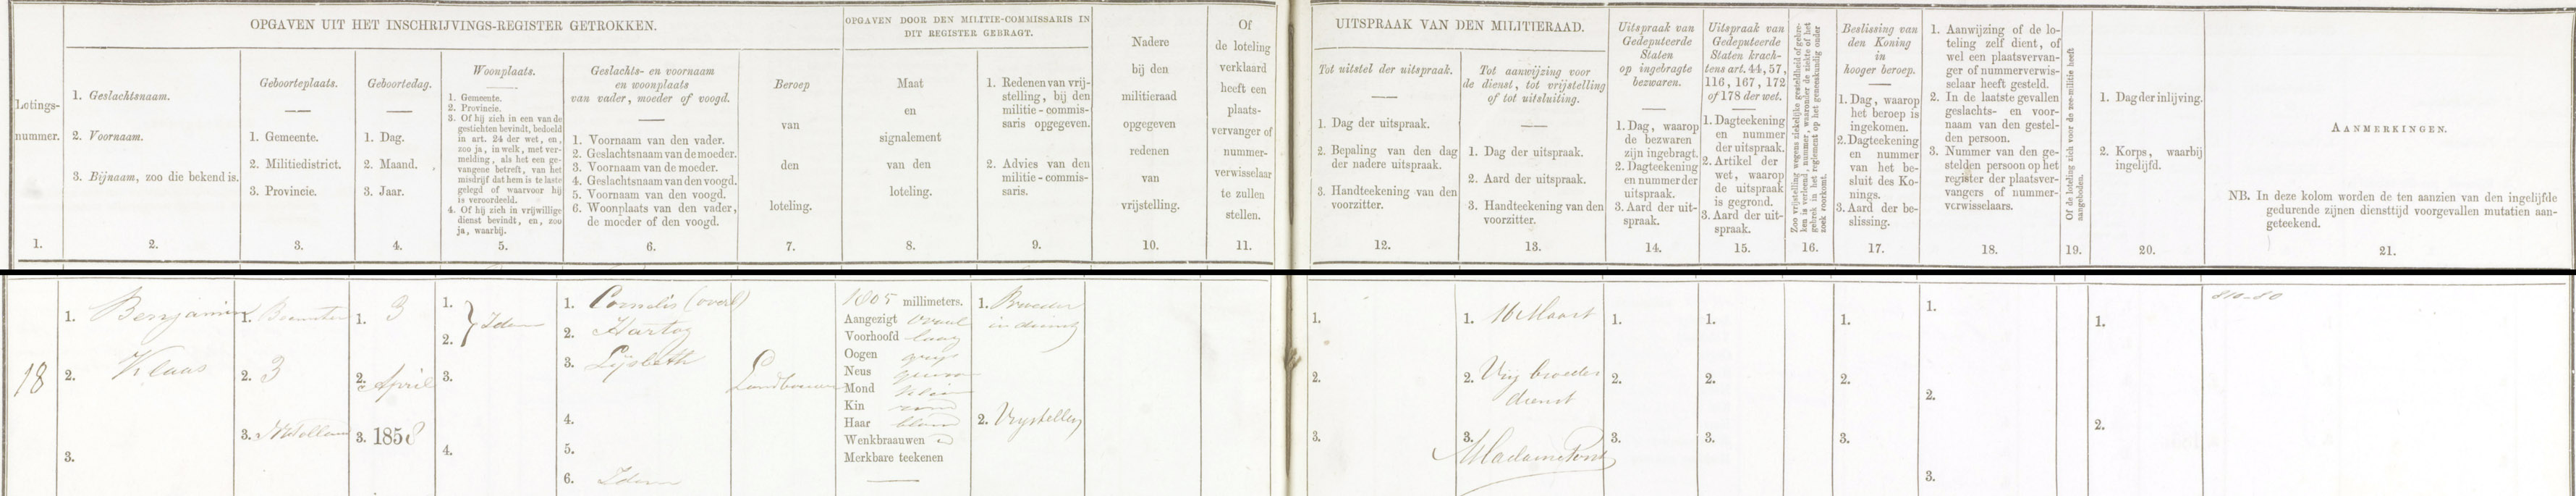 OPGAVEN UIT HET INSCHRIJVINGS-REGISTER GETROKKEN.
OPGAVEN DOOR DEN MILITIE-COMMISSARIS IN
DIT REGISTER GEBRAGT.
Lotings-
nummer.
1.
1. Geslachtsnaam.
2. Voornaam.
3. Bijnaam, zoo die bekend is.
2.
Geboorteplaats.
1. Gemeente.
2. Militiedistrict.
3. Provincie.
3.
Geboortedag.
1. Dag.
2. Maand.
3. Jaar.
4.
Woonplaats.
1. Gemeente.
2. Provincie.
3. Of hij zich in een van de
gestichten bevindt, bedoeld
in art. 24 der wet, en,
zoo ja, in welk, met ver-
melding, als het een ge-
vangene betreft, van het
misdrijf dat hem is te laste
gelegd of waarvoor hij
is veroordeeld.
4. Of hij zich in vrijwillige
dienst bevindt, en, zoo
ja, waarbij.
5.
Geslachts- en voornaam
en woonplaats
van vader, moeder of voogd.
1. Voornaam van den vader.
2. Geslachtsnaam van de moeder.
3. Voornaam van de moeder.
4. Geslachtsnaam van den voogd.
5. Voornaam van den voogd.
6. Woonplaats van den vader,
de moeder of den voogd.
6.
Beroep
van
den
loteling.
7.
Maat
en
signalement
van den
loteling.
8.
1. Redenen van vrij-
stelling, bij den
militie-commis-
saris opgegeven.
2. Advies van den
militie-commis-
saris.
9.
Nadere
bij den
militieraad
opgegeven
redenen
van
vrijstelling.
10.
Of
de loteling
verklaard
heeft een
plaats-
vervanger of
nummer-
verwisselaar
te zullen
stellen.
11.
UITSPRAAK VAN DEN MILITIERAAD.
Tot uitstel der uitspraak.
1. Dag der uitspraak.
2. Bepaling van den dag
der nadere uitspraak.
3. Handteekening van den
voorzitter.
12.
Tot aanwijzing voor
de dienst, tot vrijstelling
of tot uitsluiting.
1. Dag der uitspraak.
2. Aard der uitspraak.
3. Handteekening van den
voorzitter.
13.
Uitspraak van
Gedeputeerde
Staten
op ingebragte
bezwaren.
1. Dag, waarop
de bezwaren
zijn ingebragt.
2. Dagteekening
en nummer der
uitspraak.
3. Aard der uit-
spraak.
14.
Uitspraak van
Gedeputeerde
Staten krach-
tens art. 44, 57,
116, 167, 172
of 178 der wet.
1. Dagteekening
en nummer
der uitspraak.
2. Artikel der
wet, waarop
de uitspraak
is gegrond.
3. Aard der uit-
spraak.
15.
Zoo vrijstelling wegens ziekelijke gesteldheid of gebre-
ken is verleend, nummer, waaronder de ziekte of het
gebrek in het reglement op het geneeskundig onder
zoek voorkomt.
16.
Beslissing van
den Koning
in
hooger beroep.
1. Dag, waarop
het beroep is
ingekomen.
2. Dagteekening
en nummer
van het be-
sluit des Ko-
nings.
3. Aard der be-
slissing.
17.
1. Aanwijzing of de lo-
teling zelf dient, of
wel een plaatsvervan-
ger of nummerverwis-
selaar heeft gesteld.
2. In de laatste gevallen
geslachts- en voor-
naam van den gestel-
den persoon.
3. Nummer van den ge-
stelden persoon op het
register der plaatsver-
vangers of nummer-
verwisselaars.
18.
Of de loteling zich voor de zee-militie heeft
aangeboden.
19.
1. Dag der inlijving.
2. Korps, waarbij
ingelijfd.
20.
AANMERKINGEN.
NB. In deze kolom worden de ten aanzien van den ingelijfde
gedurende zijnen diensttijd voorgevallen mutatien aan-
geteekend.
21.
18
1. Benjamin
2. Klaas
3.
1. Beemster
2. 3
3. NHolland
1. 3
2. April
3. 1858
1.
2. } Idem
3.
4.
1. Cornelis (overl)
2. Hartog
3. Lijsbeth
4.
5.
6. Idem
Landbouwer
1605 millimeters.
Aangezigt ovaal
Voorhoofd laag
Oogen grijs
Neus gewoon
Mond klein
Kin rond
Haar blond
Wenkbraauwen
Merkbare teekenen
1. Broeder
in dienst
2. Vrijstelling
1.
2.
3.
1. 16 Maart
2. Vrij broeder
dienst
3.
1.
2.
3.
1.
2.
3.
1.
2.
3.
1.
2.
3.
1.
2.